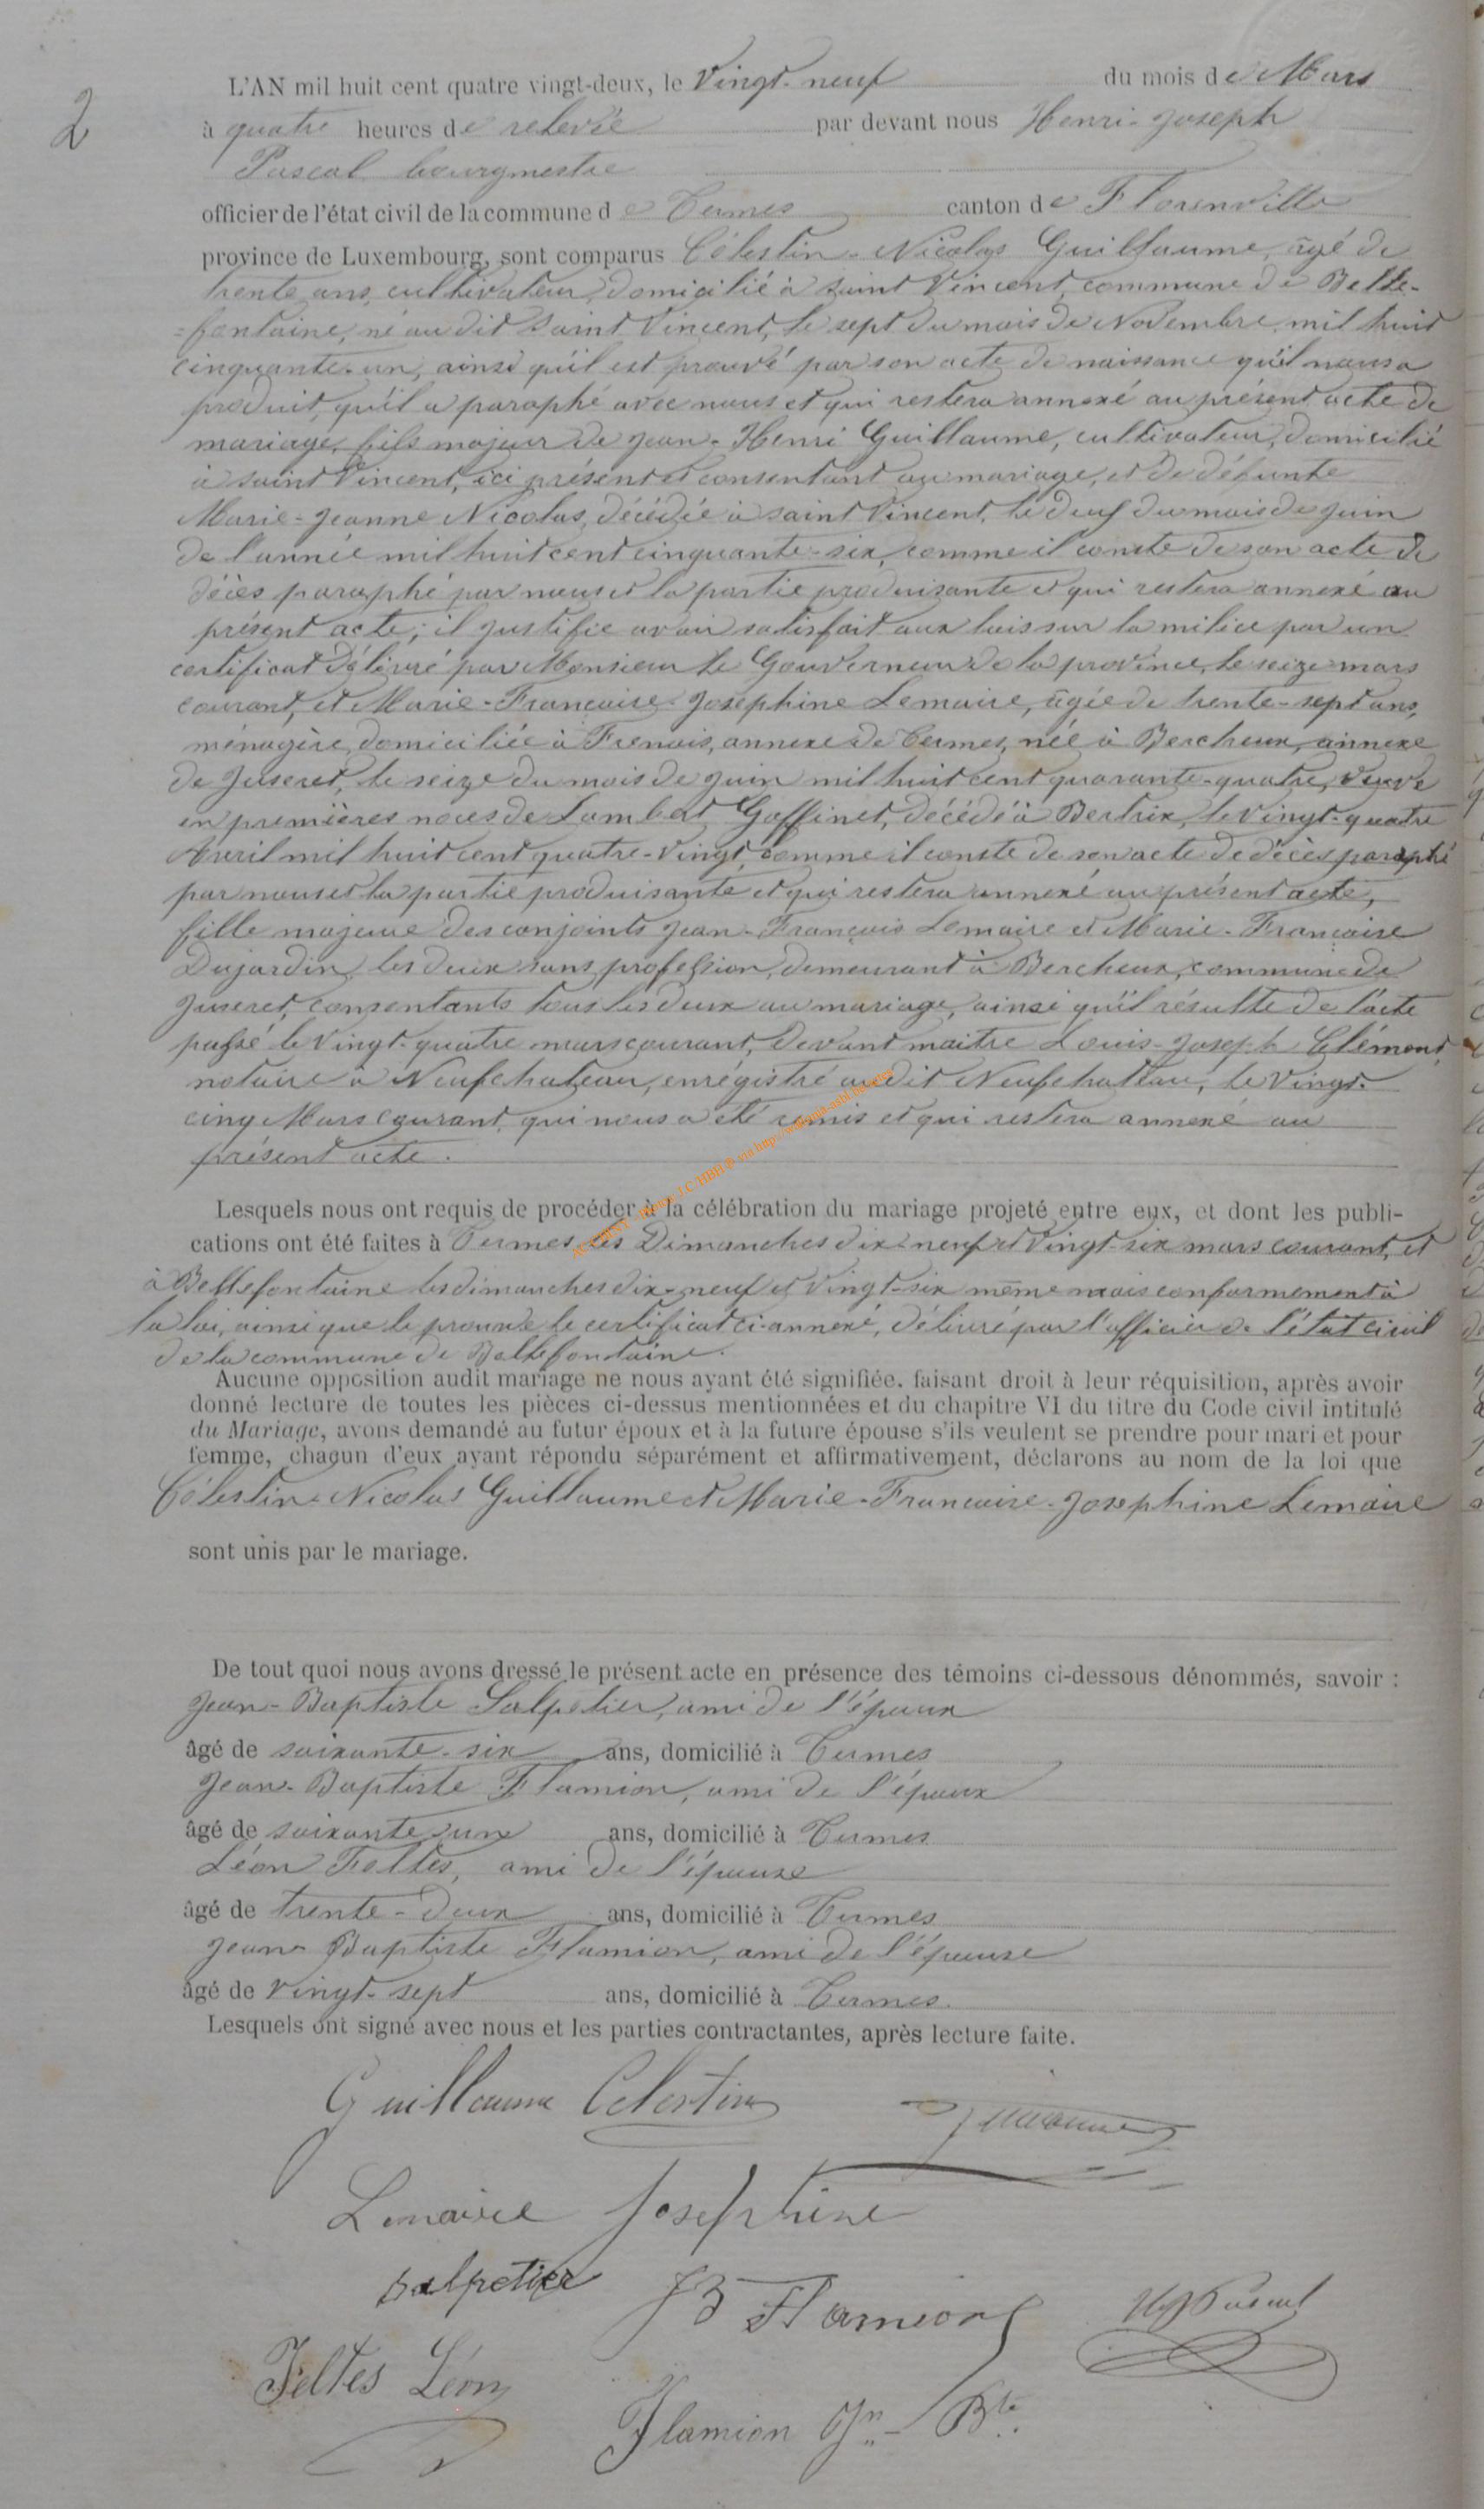 2
L'AN mil huit cent quatre vingt-deux, le Vingt-neuf du mois de Mars
à quatre heures de relevée par devant nous Henri-Joseph
Pascal bourgmestre
officier de l'état civil de la commune de Termes canton de Florenville
province de Luxembourg, sont comparus Célestin-Nicolas Guillaume, âgé de
trente ans, cultivateur, domicilié à Saint Vincent, commune de Belle-
=fontaine, né au dit Saint Vincent, le sept du mois de Novembre mil huit
cinquante-un, ainsi qu'il est prouvé par son acte de naissance qu'il nous a
produit, qu'il a paraphé avec nous et qui restera annexé au présent acte de
mariage, fils majeur de Jean-Henri Guillaume, cultivateur, domicilié
à Saint Vincent, ici présent et consentant au mariage, et de défunte
Marie-Jeanne Nicolas, décédée à Saint Vincent, le du mois de Juin
de l'année mil huit cent cinquante-six, comme il conste de son acte de
décès paraphé par nous et la partie produisante et qui restera annexé au
présent acte; il justifie avoir satisfait aux lois sur la milice par un
certificat délivré par Monsieur le Gouverneur de la province, le seize mars
courant, et Marie-Francoise-Josephine Lemaire, âgée de trente-sept ans,
ménagère, domiciliée à Frenois, annexe de Termes, née à Bercheux, annexe
de Juseret, le seize du mois de Juin mil huit cent quarante-quatre, veuve
en premières noces de Lambert Goffinet, décédé à Bertrix, le vingt-quatre
Avril mil huit cent quatre-vingt, comme il conste de son acte de décès paraphé
par nous et la partie produisante et qui restera annexé au présent acte,
fille majeure des conjoints Jean-François Lemaire et Marie-Francoise
Dujardin, les deux sans profession, demeurant à Bercheux, commune de
Juseret, consentants tous les deux au mariage, ainsi qu'il résulte de l'acte
passé le vingt-quatre mars courant, devant maitre Louis-Joseph Clément,
notaire à Neufchateau, enrégistré au dit Neufchateau, le vingt-
cinq Mars courant, qui nous a été remis et qui restera annexé au
présent acte.
Lesquels nous ont requis de procéder à la célébration du mariage projeté entre eux, et dont les publi-
cations ont été faites à Termes les Dimanches dix-neuf et vingt-six mars courant, et
à Bellefontaine les dimanches dix-neuf et vingt-six même mois conformement à
la loi, ainsi que le prouve le certificat ci-annexé, délivré par l'officier de l'état civil
de la commune de Bellefontaine.
Aucune opposition audit mariage ne nous ayant été signifiée. faisant droit à leur réquisition, après avoir
donné lecture de toutes les pièces ci-dessus mentionnées et du chapitre VI du titre du Code civil intitulé
du Mariage, avons demandé au futur époux et à la future épouse s'ils veulent se prendre pour mari et pour
femme, chacun d'eux ayant répondu séparément et affirmativement, déclarons au nom de la loi que
Célestin-Nicolas Guillaume et Marie-Francoise-Josephine Lemaire
sont unis par le mariage.
De tout quoi nous avons dressé le présent acte en présence des témoins ci-dessous dénommés, savoir :
Jean-Baptiste Salpetier, ami de l'époux
âgé de soixante-six ans, domicilié à Termes
Jean-Baptiste Flamion, ami de l'époux
âgé de soixante-un ans, domicilié à Termes
Léon Feltes, ami de l'épouse
âgé de trente-deux ans, domicilié à Termes
Jean-Baptiste Flamion, ami de l'épouse
âgé de vingt-sept ans, domicilié à Termes.
Lesquels ont signé avec nous et les parties contractantes, après lecture faite.
Guillaume Celestin
Lemaire Josephine
Salpetier JB Flamion HJ Pascal
Feltes Léon
Flamion Jn-Bte